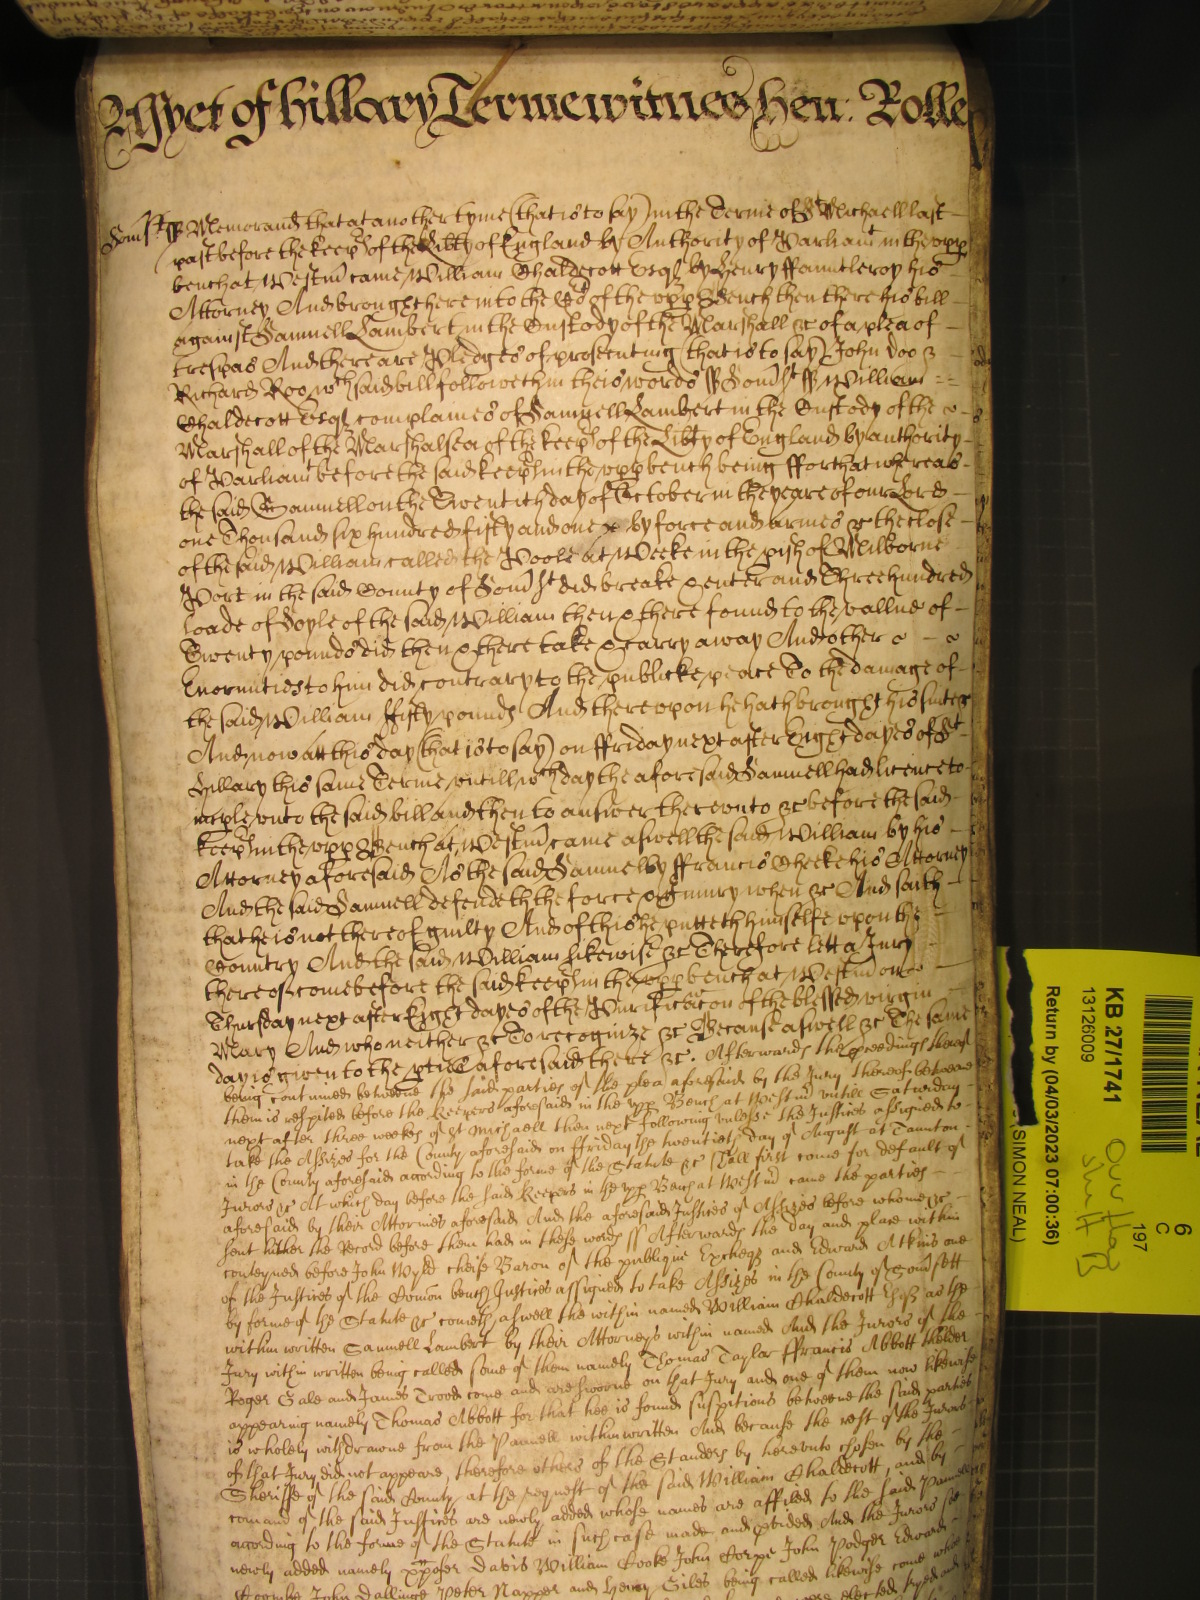 As yet of hillary Terme witnes Hen: Rolle
Som̃st ss Memorand that at another tyme (that is to say) in the Terme of St Michaell last
past before the keep̃s of the Lib̃ty of England by Authority of Parliamt in the vpp
bench at Westm̃ came William Chaldecott Esqr by Henry ffauntleroy his
Attorney And brought here into the Co͠rt of the vpp Bench then there his bill
against Samuell Lambert in the Custody of the Marshall &c of a plea of
trespas And there are Pledges of prosecuting (that is to say) John Doo &
Richard Roo wch said bill followeth in theis words ss Som̃st ss William
Chaldecott Esqr complaines of Samuell Lambert in the Custody of the
Marshall of the Marshalsea of the keep̃s of the Lib̃ty of England by authority
of Parliamt before the said keep̃s in the vpp bench being ffor that whereas
the said Samuell on the Twentith day of October in the yeare of our Lord
one Thousand six hundred fifty and one by force and armes &c the close
of the said William called the Poole at Weeke in the p̃ish of Milborne
Port in the said County of Som̃st did breake & enter and Three hundred
loade of Soyle of the said William then & there found to the vallue of
Twenty pounds did then & there take & carry away And other
Enormities to him did contrary to the publicke peace To the damage of
the said William ffifty pounds And thereupon he hath brought his suite &c
And now att this day (that is to say) on ffriday next after Eight dayes of St
Hillary this same Terme vntill wch day the aforesaid Samuell had licence to
imple vnto the said bill and then to answer therevnto &c before the said
keep̃s in the vpp Bench at Westm̃ came aswell the said William by his
Attorney aforesaid As the said Samuel by ffrancis Cheeke his Attorney
And the said Samuell defendeth the force & Iniury when &c And saith
that he is not thereof guilty And of this he putteth himselfe vpon the
Country And the said William likewise &c Therefore lett a Jury
thereof come before the said keep̃s in the vpp bench at Westm̃ on
Thursday next after Eight dayes of the Purificac͠on of the blessed virgin
Mary And who neither &c To recognize &c Because aswell &c The same
day is given to the p̃ties aforesaid there &c. Afterwards the p̃ceedings thereof
being continued betweene the said parties of the plea aforesaid by the Jury thereof betweene
them is respited before the Keepers aforesaid in the vpp Bench at Westm̃ vntill Saturday
next after three weekes of St Michaell then next following vnlesse the Justices assigned to
take the Assizes for the County aforesaid on ffriday the twentieth day of August at Taunton
in the County aforesaid according to the forme of the Statute &c shall first come for default of
Jurors &c At which day before the said Keepers in the vpp Bench at Westm̃ came the parties
aforesaid by their Attornies aforesaid And the aforesaid Justices of Assizes before whome &c
sent hither the Record before them had in these words ss Afterwards the day and place within
conteyned before John Wyld cheife Baron of the publique Excheqr and Edward Atkins one
of the Justices of the Com̃on bench Justices assigned to take Assizes in the County of Som̃sett
by forme of the Statute &c cometh aswell the within named William Chaldecott Esqr as the
within written Samuell Lambert by their Attorneys within named And the Jurors of the
Jury within written being called some of them namely Thomas Taylor ffrancis Abbott
Roger Gale and James Trood come and are sworne on that Jury and one of them now likewise
appearing namely Thomas Abbott for that hee is found suspitious betweene the said parties
is wholely withdrawne from the Pannell within written And because the rest of the Jurors
of that Jury did not appeare, therefore others of the Standers by herevnto chosen by the
Sheriffe of the said County at the request of the said William Chaldecott, and by
comand of the said Justices are newly added whose names are affiled to the said Pannell
according to the forme of the Statute in such case made and p̃vided And the Jurors soe
newly added namely xp̃ofer Davis William Cooke John Corpe John Podger Edward
Coombe John Dallinge Peter Napper and Henry Giles being called likewise come who
KB 27/1741
13126009
Return by (04/03/2023 07:00:36)
(SIMON NEAL)
197
C
6